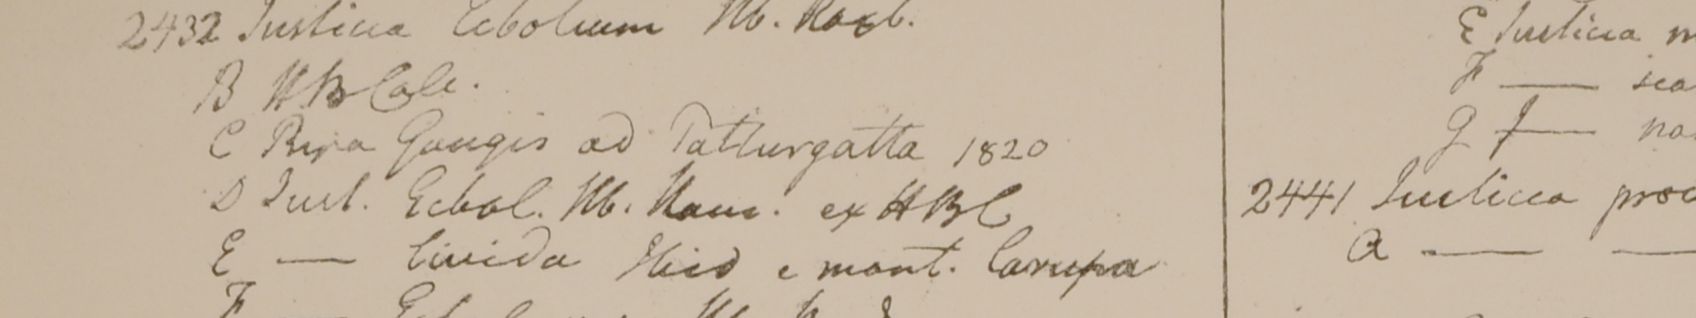 2432 Justicia Ecbolium Hb. Roxb.
B HB Calc.
C Ripa Gangis ad Patturgatta 1820
D Just. Ecbol. Hb. Ham. ex HBC
E — livida Ibid e mont. Carupa
E Justicia
F —
G —
2441 Justicia
a — —